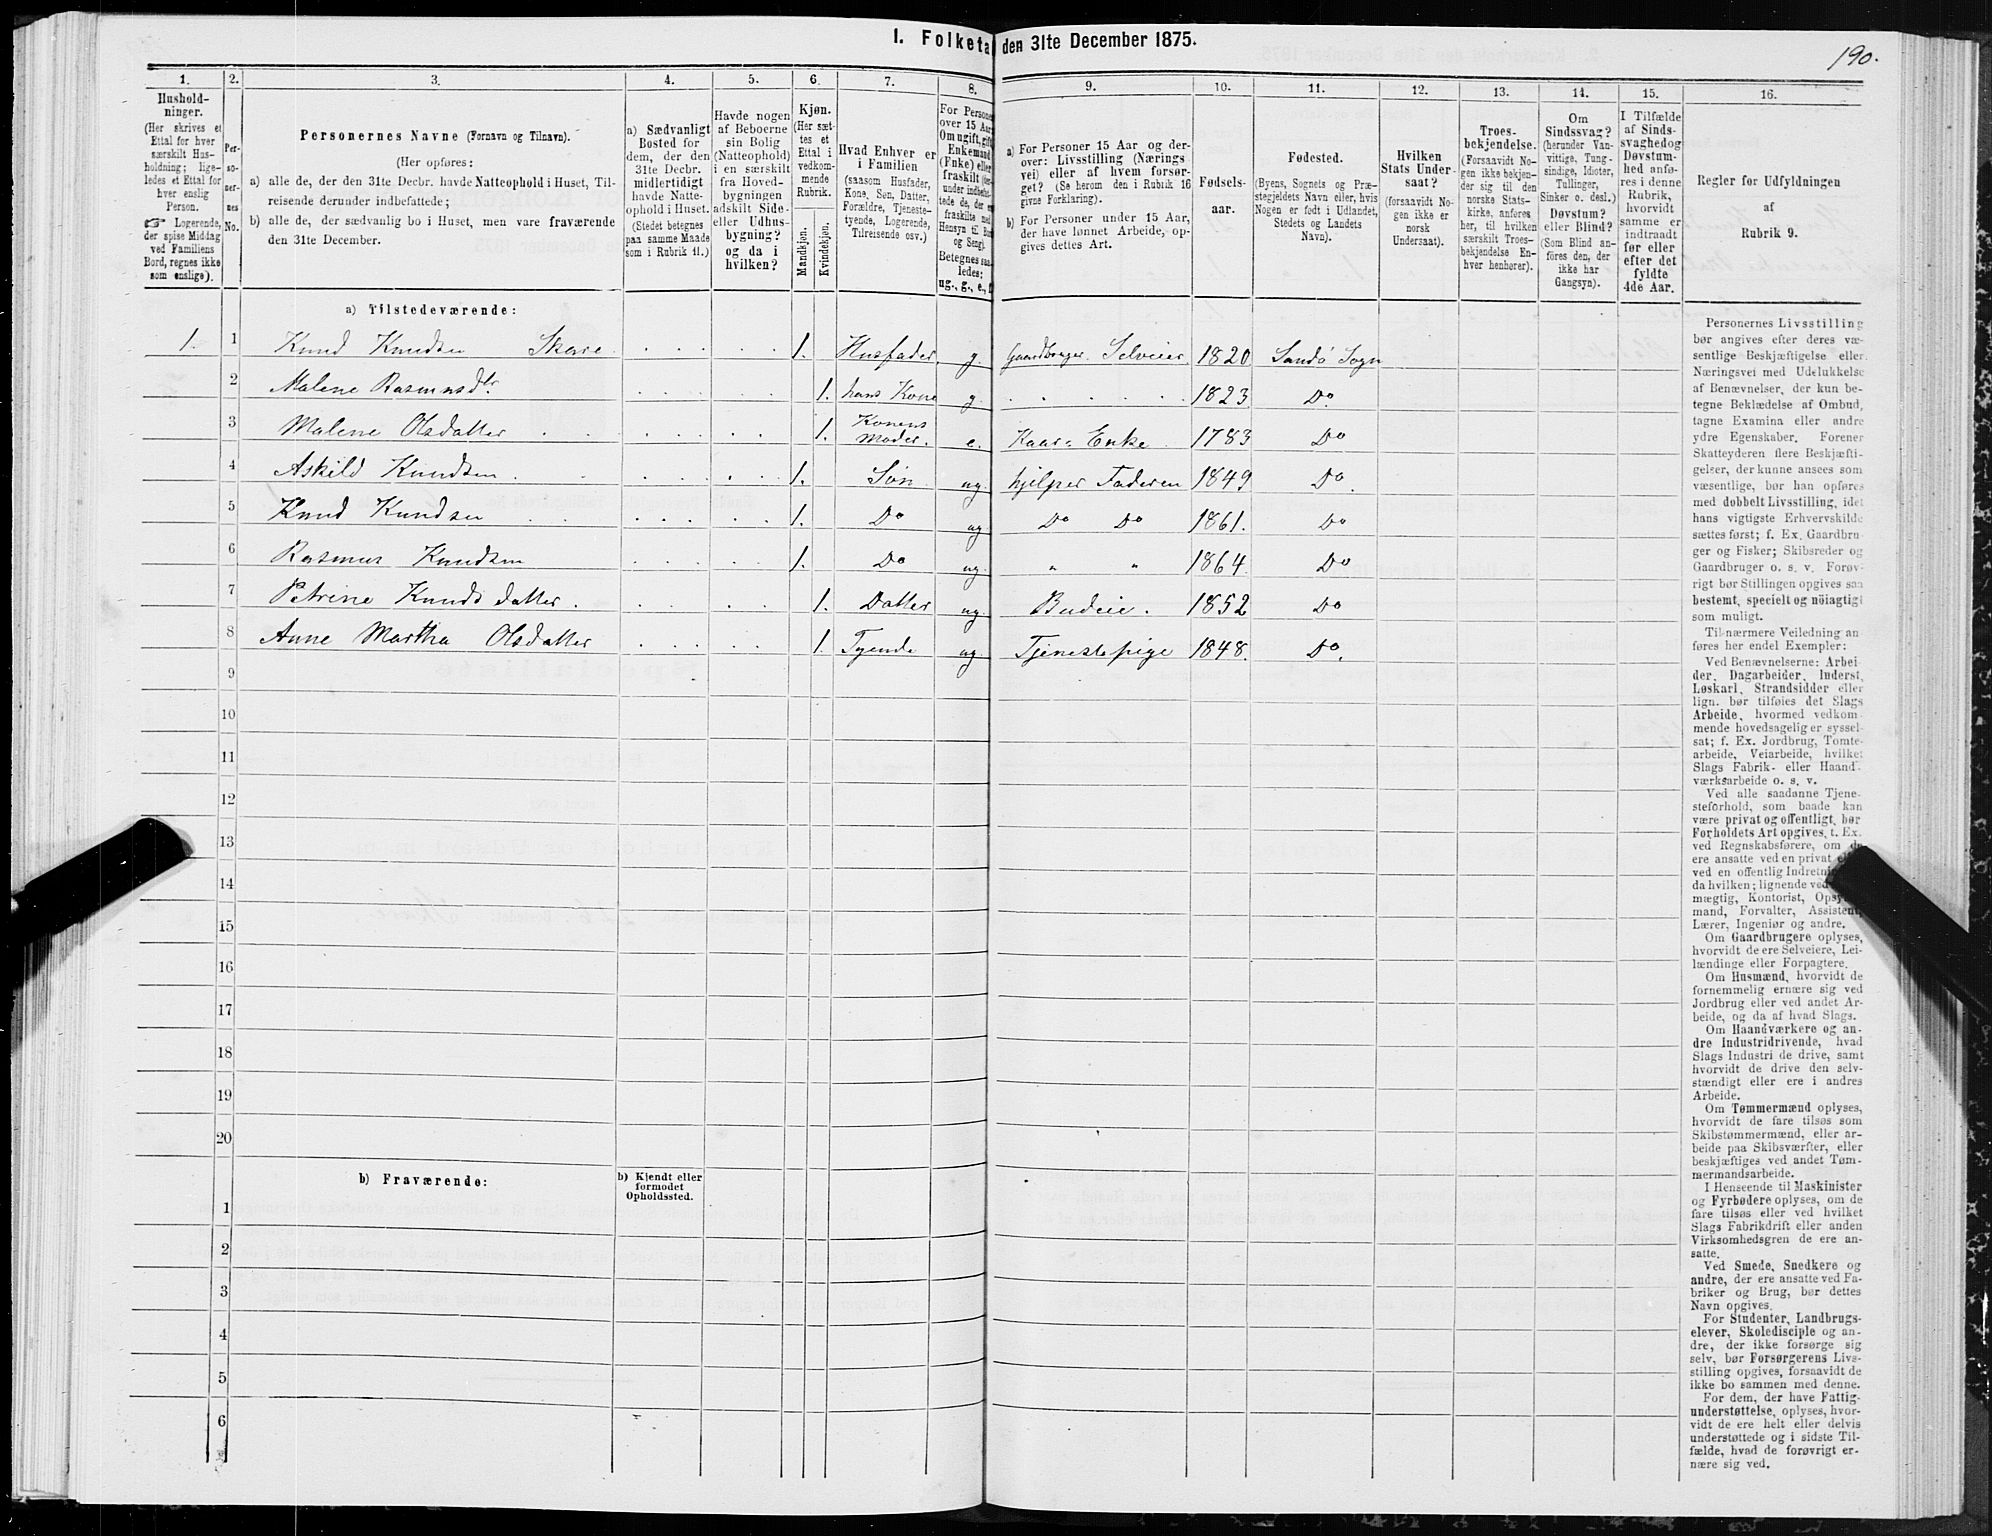 190.
I. Folketa den 31te December 1875.
1. 2. 3. 4. 5. 6. 7. 8. 9. 10. 11. 12. 13. 14. 15. 16.
Hushold-
ninger.
(Her skrives et
Ettal for hver
særskilt Hus-
holdning; lige-
ledes et Ettal for
hver enslig
Person.
☞ Logerende,
der spise Middag
ved Familiens
Bord, regnes ikke
som enslige).
Per-
so-
ner-
nes
No.
Personernes Navne (Fornavn og Tilnavn).
(Her opføres:
a) alle de, der den 31te Decbr. havde Natteophold i Huset, Til-
reisende derunder indbefattede;
b) alle de, der sædvanlig bo i Huset, men vare fraværende
den 31te December.
a) Sædvanligt
Bosted for
dem, der den
31te Decbr.
midlertidigt
havde Natte-
ophold i Huset.
(Stedet betegnes
paa samme Maade
som i Rubrik 11.)
Havde nogen
af Beboerne
sin Bolig
(Natteophold)
i en særskilt
fra Hoved-
bygningen
adskilt Side-
eller Udhus-
bygning?
og da i
hvilken?
Kjøn.
(Her sæt-
tes et
Ettal i
vedkom-
mende
Rubrik.
Mandkjøn.
Kvindekjøn.
Hvad Enhver er
i Familien
(saasom Husfader,
Kone, Søn, Datter,
Forældre, Tjeneste-
tyende, Logerende,
Tilreisende osv.)
For Persone
over 15 Aar
Om ugift, gift
Enkemand
(Enke) eller
fraskilt
Betegnes saa-
ledes:
ug., g., e., f
a) For Personer 15 Aar og der-
over: Livsstilling (Nærings
vei) eller af hvem forsør-
get? (Se herom den i Rubrik 16
givne Forklaring).
b) For Personer under 15 Aar,
der have lønnet Arbeide, op-
gives dettes Art.
Fødsels-
aar.
Fødested.
(Byens, Sognets og Præ-
stegjeldets Navn eller, hvis
Nogen er født i Udlandet,
Stedets og Landets
Navn).
Hvilken
Stats Under-
saat?
(forsaavidt No-
gen ikke er
norsk
Undersaat).
Troes-
bekjendelse.
(Forsaavidt No-
gen ikke bekjen-
der sig til den
norske Stats-
kirke, anføres
her, til hvilken
særskilt Troes-
bekjendelse En-
hver henhører).
Om
Sindssvag?
(herunder Van-
vittige, Tung-
sindige, Idioter,
Tullinger,
Sinker o. desl.)
Døvstum?
eller Blind?
(Som Blind an-
føres den, der
ikke har
Gangsyn).
I Tilfælde
af Sinds-
svaghed og
Døvstum-
hed anfø-
res i denne
Rubrik,
hvorvidt
samme er
indtraadt
før eller
efter det
fyldte
4de Aar.
Regler for Udfyldningen
af
Rubrik 9.
a) Tilstedeværende:
1. 1 Knud Knudsen Skare 1. Husfader. g. Gaardbruger Selveier 1820 Sandø Sogn
2 Malene Rasmusdtr 1. hans Kone g. 1823 Do
3 Malene Olsdatter 1. Konens Moder. e. Kaar=Enke 1783 Do
4 Askild Knudsen 1. Søn ug. hjelper Faderen 1849 Do.
5 Knud Knudsen 1. Do ug Do Do 1861. Do
6 Rasmus Knudsen 1. Do ug. " " 1864. Do
7 Petrine Knuds datter. 1. Datter ug. Budeie. 1852 Do
8 Anne Martha Olsdatter 1. Tyende ug. Tjenestepige 1848. Do.
9
10
11
12
13
14
15
16
17
18
19
20
b) Fraværende:
b) Kjendt eller
formodet
Opholdssted.
1
2
3
4
5
6
Personernes Livsstilling
bør angives efter deres væ-
sentlige Beskjæftigelse eller
Næringsvei med Udelukkelse
af Benævnelser, der kun be-
tegne Beklædelse af Ombud,
tagne Examina eller andre
ydre Egenskaber. Forener
Skatteyderen flere Beskjæfti-
gelser, der kunne ansees som
væsentlige, bør han opføres
med dobbelt Livsstilling, idet
hans vigtigste Erhvervskilde
sættes først; f. Ex. Gaardbru-
ger og Fisker; Skibsreder og
Gaardbruger o. s. v. Forøv-
rigt bør Stillingen opgives saa
bestemt, specielt og nøiagtigt
som muligt.
Til nærmere Veiledning an
føres her endel Exempler:
Ved Benævnelserne: Arbei-
der, Dagarbeider, Inderst,
Løskarl, Strandsidder eller
lign. bør tilføies det Slags
Arbeide, hvormed vedkom-
mende hovedsagelig er syssel-
sat; f. Ex. Jordbrug, Tomte-
arbeide, Veiarbeide, hvilket
Slags Fabrik- eller Haand-
værksarbeide o. s. v.
Ved alle saadanne Tjene-
steforhold, som baade kan
være privat og offentligt, bør
Forholdets Art opgives, t. Ex.
ved Regnskabsførere, om de
ere ansatte ved en privat
ved en offentlig Indretnin
da hvilken; lignende ved
mægtig, Kontorist, Opsy
mand, Forvalter, Assistent,
Lærer, Ingeniør og andre.
Om Gaardbrugere oplyses,
hvorvidt de ere Selveiere, Lei-
lændinge eller Forpagtere.
Om Husmænd, hvorvidt de
fornemmelig ernære sig ved
Jordbrug eller ved andet Ar-
beide, og da af hvad Slags.
Om Haandværkere og an-
dre Industridrivende, hvad
Slags Industri de drive, samt
hvorvidt de drive den selv-
stændigt eller ere i andres
Arbeide.
Om Tømmermænd oplyses,
hvorvidt de fare tilsøs som
Skibstømmermænd, eller ar-
beide paa Skibsværfter, eller
beskjæftiges ved andet Tøm-
mermandsarbeide.
I Henseende til Maskinister
og Fyrbødere oplyses, om de
fare tilsøs eller ved hvilket
Slags Fabrikdrift eller anden
Virksomhedsgren de ere an-
satte.
Ved Smede, Snedkere og
andre, der ere ansatte ved Fa-
briker og Brug, bør dettes
Navn opgives.
For Studenter, Landbrugs-
elever, Skoledisciple og an-
dre, der ikke forsørge sig
selv, bør Forsørgerens Livs-
stilling opgives, forsaavidt de
ikke bo sammen med denne.
For dem, der have Fattig-
understøttelse, oplyses, hvor-
vidt de ere helt eller delvis
understøttede og i sidste Til-
fælde, hvad de forøvrigt er-
nære sig ved.